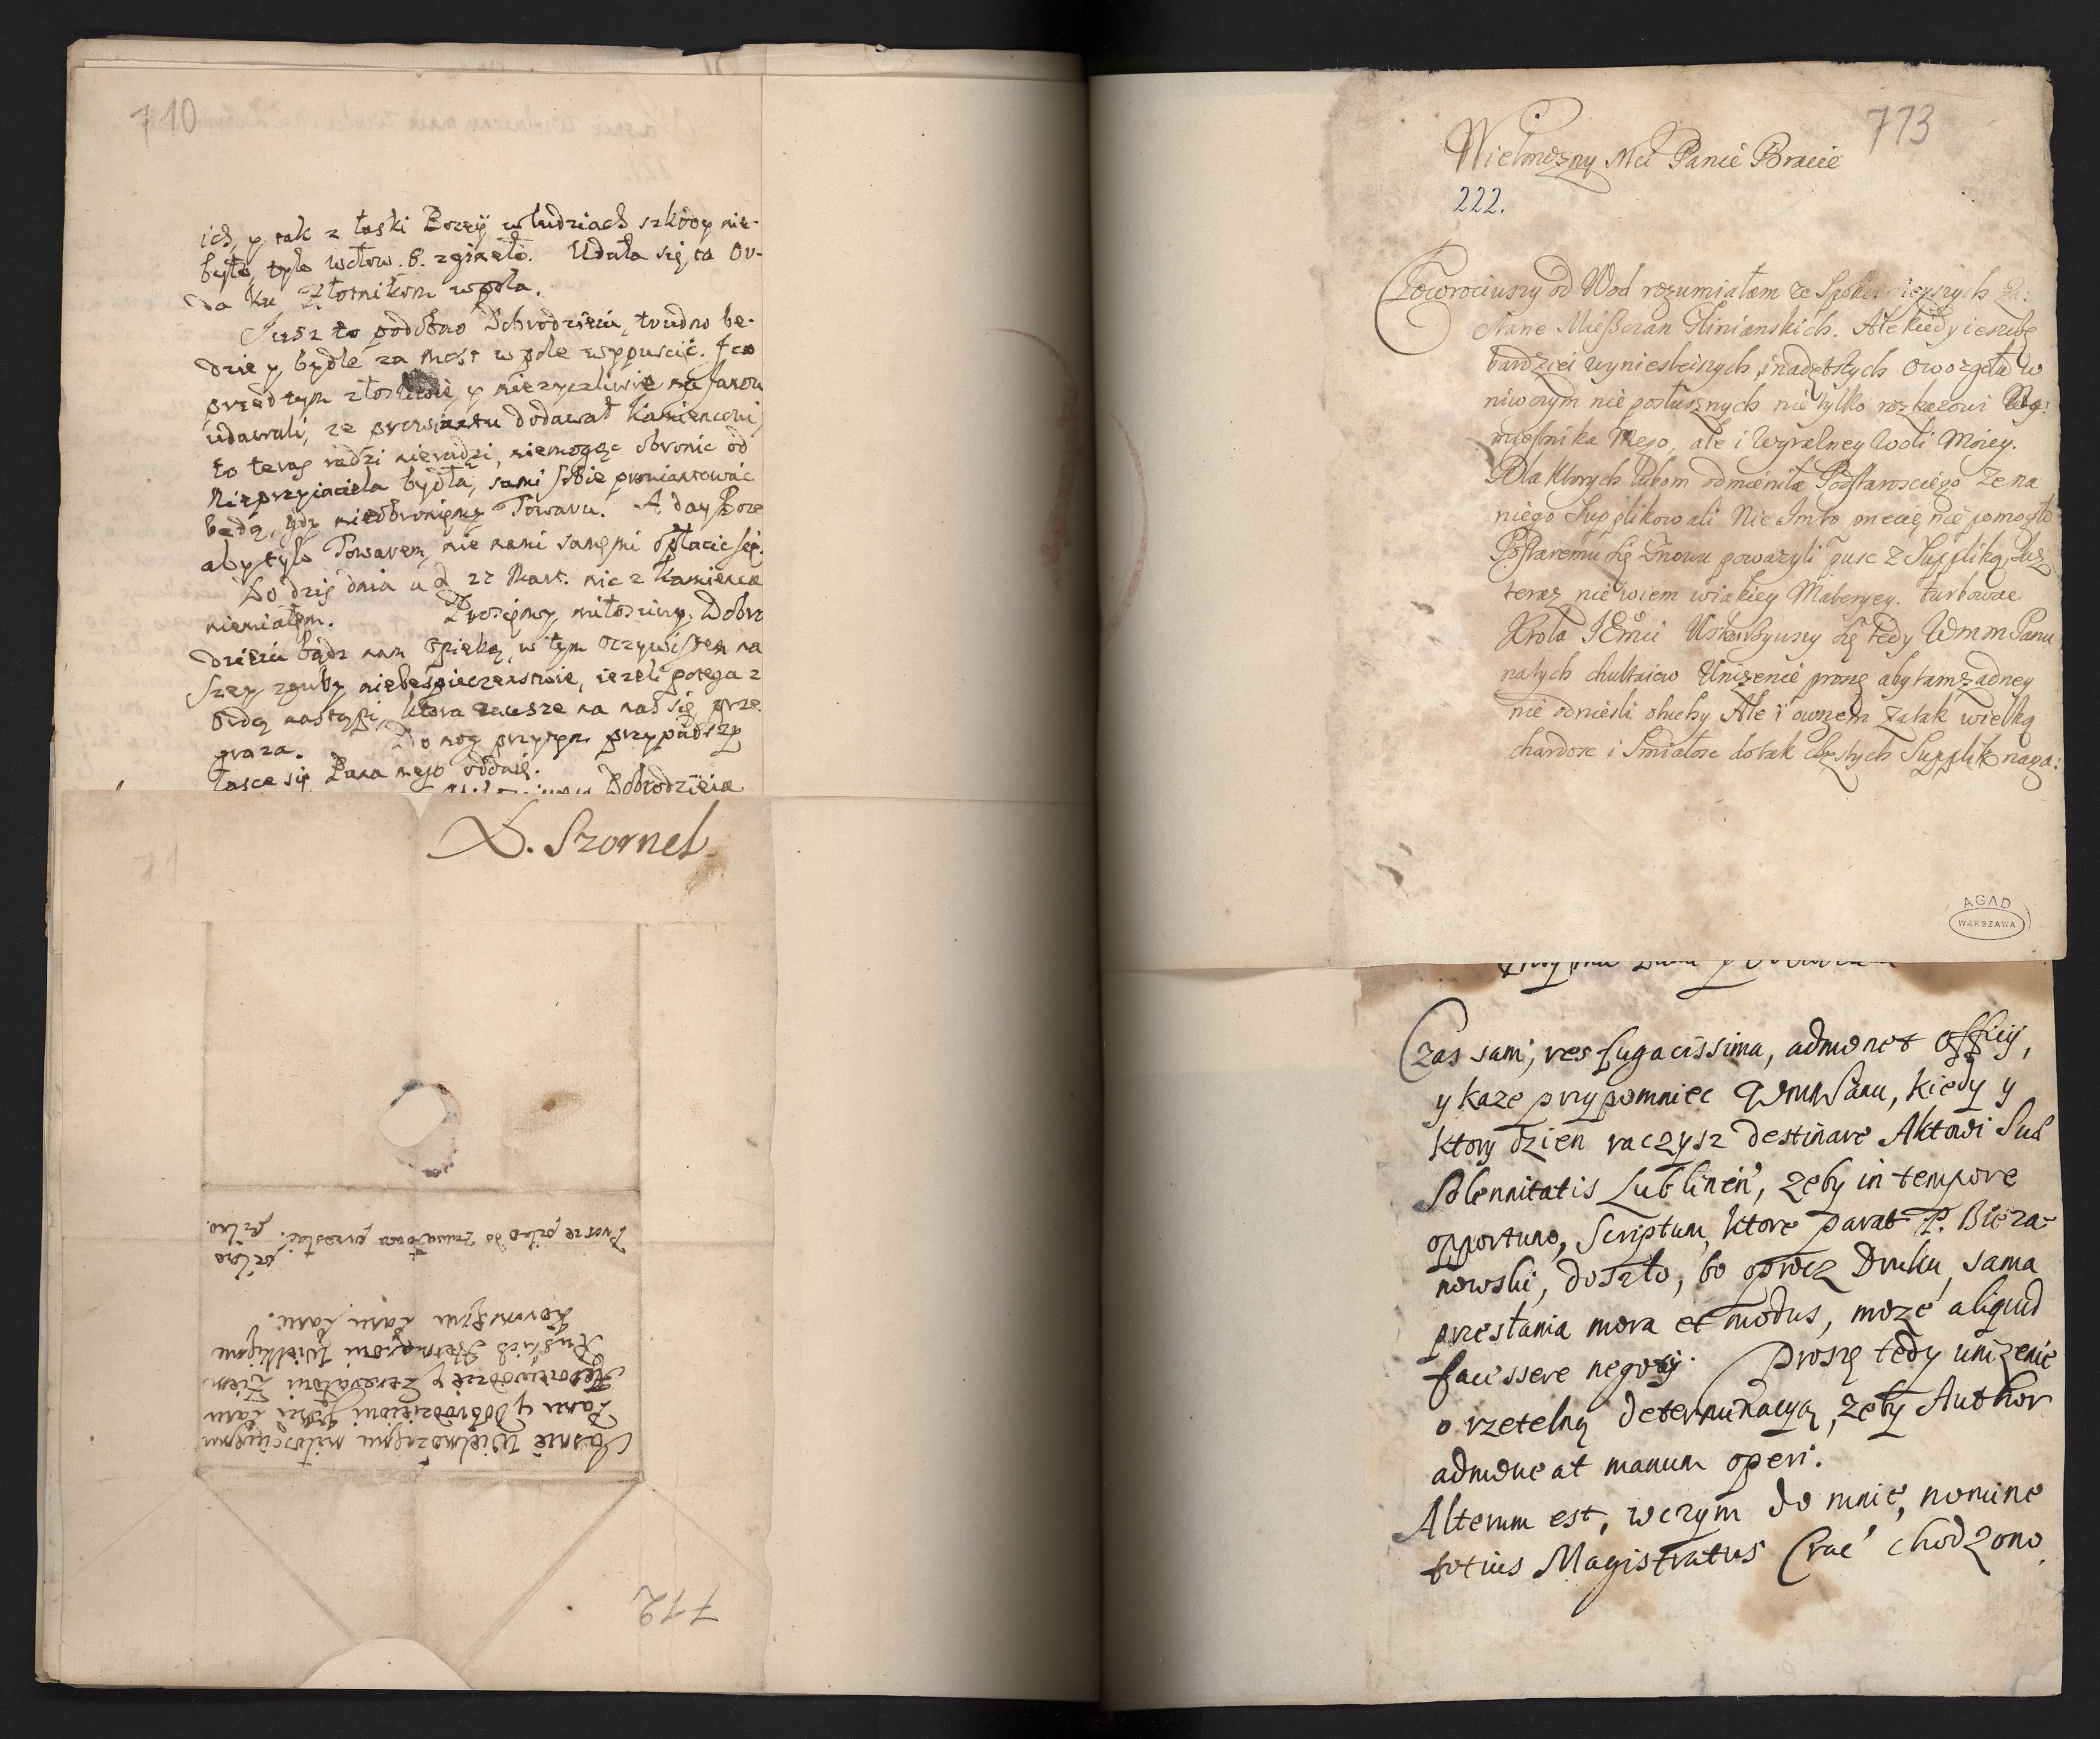 710
ich, y tak z łaski Bozey w ludziach szkody nie-
było, tylo wołow. 8. zgineło. Udała się ta Or-
da ku Złotnikom w pola.
Jusz to podobno Dobrodzieiu, trudno be-
dzie y bydłe za Most w pole wypuscić. Jeo
przed tym złosliwie y niezyczliwie
udawali, ze prowiantu dodawał Kamiencowi,
to teras radzi nieradzi, niemogąc obronić od
Nieprzyiaciela bydła, sami sobie prowiantować
będą, gdy nieobronięmy Towaru. A day Boze
aby tylo Towarem, nie nami samęmi opłacic się.
Do dzis dnia a d 27 Mart. nic z Kamienca
niemiałem. Prosięmy, miłosciwy Dobro
dzieiu bądz nam opieką, w tym oczywistem na
szey zguby niebespieczenstwie, iezeli potega z
Ordą nastąpi, ktora zawsze na nas się prze
graza. Do nog przytym przypadszy
łasce się Pana mego oddaię.
Dobrodzieia
D. Szornel
Prosze pilno do Zwiastowa przesłać. pilno
pilno
Jasnie Wielmoznemu miłosciwemu
Panu y Dobrodzieiowi Jmci Panu
Woiewodzie y Generałowi Ziem
Ruskich Hetmanowi Wielkiemu
Koronnemu Panu Panu.
712
773
Wielmozny Mci Panie Bracie
222.
Powrociwszy od Wod rozumiałem ze Spokoinieyszych za:
stane Mießczan Glinianskich. Ale kiedy ieszcze
bardziei wyniesleiszych, i nadętszych owo zgoła w
niwczym nie posłusznych nie tylko rozkazowi Nag:
miestnika Mego, ale i wyralney Woli Moiey.
Dla ktorych lubom odmienił Podstarosciego ze na
niego Supplikowali Nic Im to przecię nie pomogło
Postaremu się znowu powazyli pusc z Suppliką, lusz
teraz nie wiem wiakiey Materyey. turbowac
Krola JEmci Uskarzywszy się tedy Wmm Panu
natych chultaiow Unizenie proszę aby tam zadney
nie odniesli otuchy Ale i owszem za tak wielką
chardosc i Smiałosc do tak częstych Supplik naga:
AGAD
WARSZAWA
Czas sam, res fugacissima, admonet officij,
y kaze przypomniec WmmPanu, kiedy y
ktory dzien raczysz destinare Aktowi Suae
Solennitatis Lublinen, zeby in tempore
opportuno, Scriptum, ktore parat P. Bieza-
nowski, doszło, bo oprocz Druku, sama
przesłania mora et modus, moze aliquid
facessere negotij. Proszę tedy unizenie
o rzetelną determinacyą, zeby Author
admoueat manum operi.
Alterum est, w czym do mnie, nomine
totius Magistratus Crac chodzono